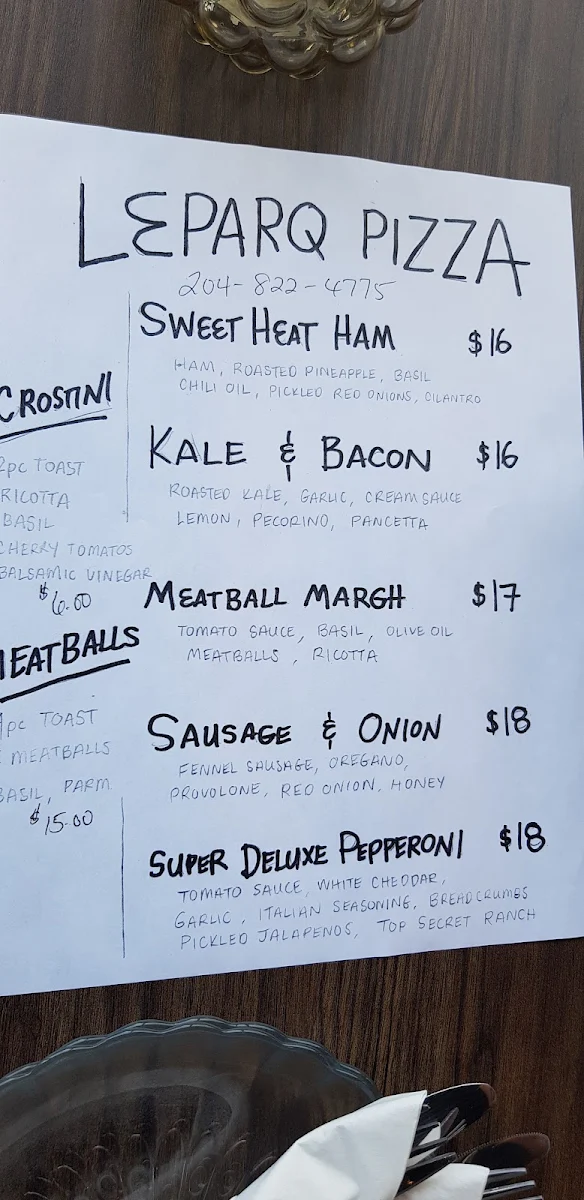 LEPARQ PIZZA
204-822-4775
SWEET HEAT HAM $16
HAM, ROASTED PINEAPPLE, BASIL
CHILI OIL, PICKLED RED ONIONS, CILANTRO
KALE & BACON $16
ROASTED KALE, GARLIC, CREAM SAUCE
LEMON, PECORINO, PANCETTA
MEATBALL MARGH $17
TOMATO SAUCE, BASIL, OLIVE OIL
MEATBALLS, RICOTTA
SAUSAGE & ONION $18
FENNEL SAUSAGE, OREGANO,
PROVOLONE, RED ONION, HONEY
SUPER DELUXE PEPPERONI $18
TOMATO SAUCE, WHITE CHEDDAR,
GARLIC, ITALIAN SEASONING, BREADCRUMBS
PICKLED JALAPENOS, TOP SECRET RANCH
CROSTINI
2PC TOAST
RICOTTA
BASIL
CHERRY TOMATOS
BALSAMIC VINEGAR
$6.00
MEATBALLS
PC TOAST
MEATBALLS
BASIL, PARM
$15.00